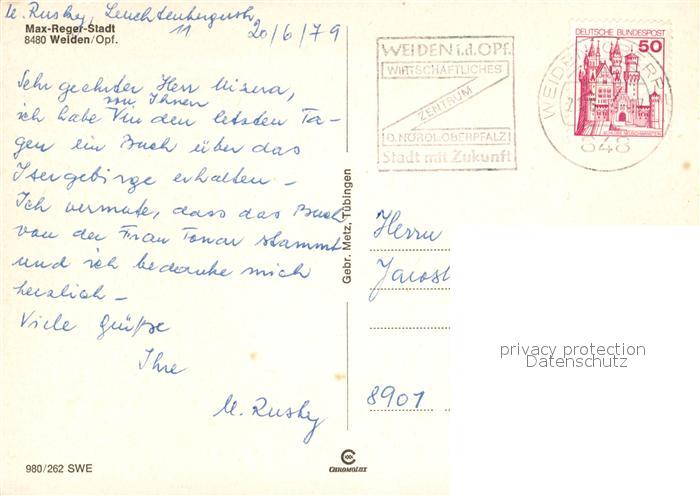 M. Rusky, Leuchtenbergerstr
11 20/6/79
Max-Reger-Stadt
8480 Weiden/Opf.
Sehr geehrter Herr Misera,
von Ihnen
ich habe V in den letzten Ta-
gen ein Buch über das
Isergebirge erhalten –
Ich vermute, dass das Buch
von der Frau Tonar stammt
und ich bedanke mich
herzlich –
Viele Grüße
Ihre
M. Rusky
980/262 SWE
Gebr. Metz, Tübingen
CHROMOLUX
WEIDEN i.d.OPf.
WIRTSCHAFTLICHES
ZENTRUM
D. NÖRDL. OBERPFALZ
Stadt mit Zukunft
DEUTSCHE BUNDESPOST
50
848
Herrn
Jarosl
8901
privacy protection
Datenschutz